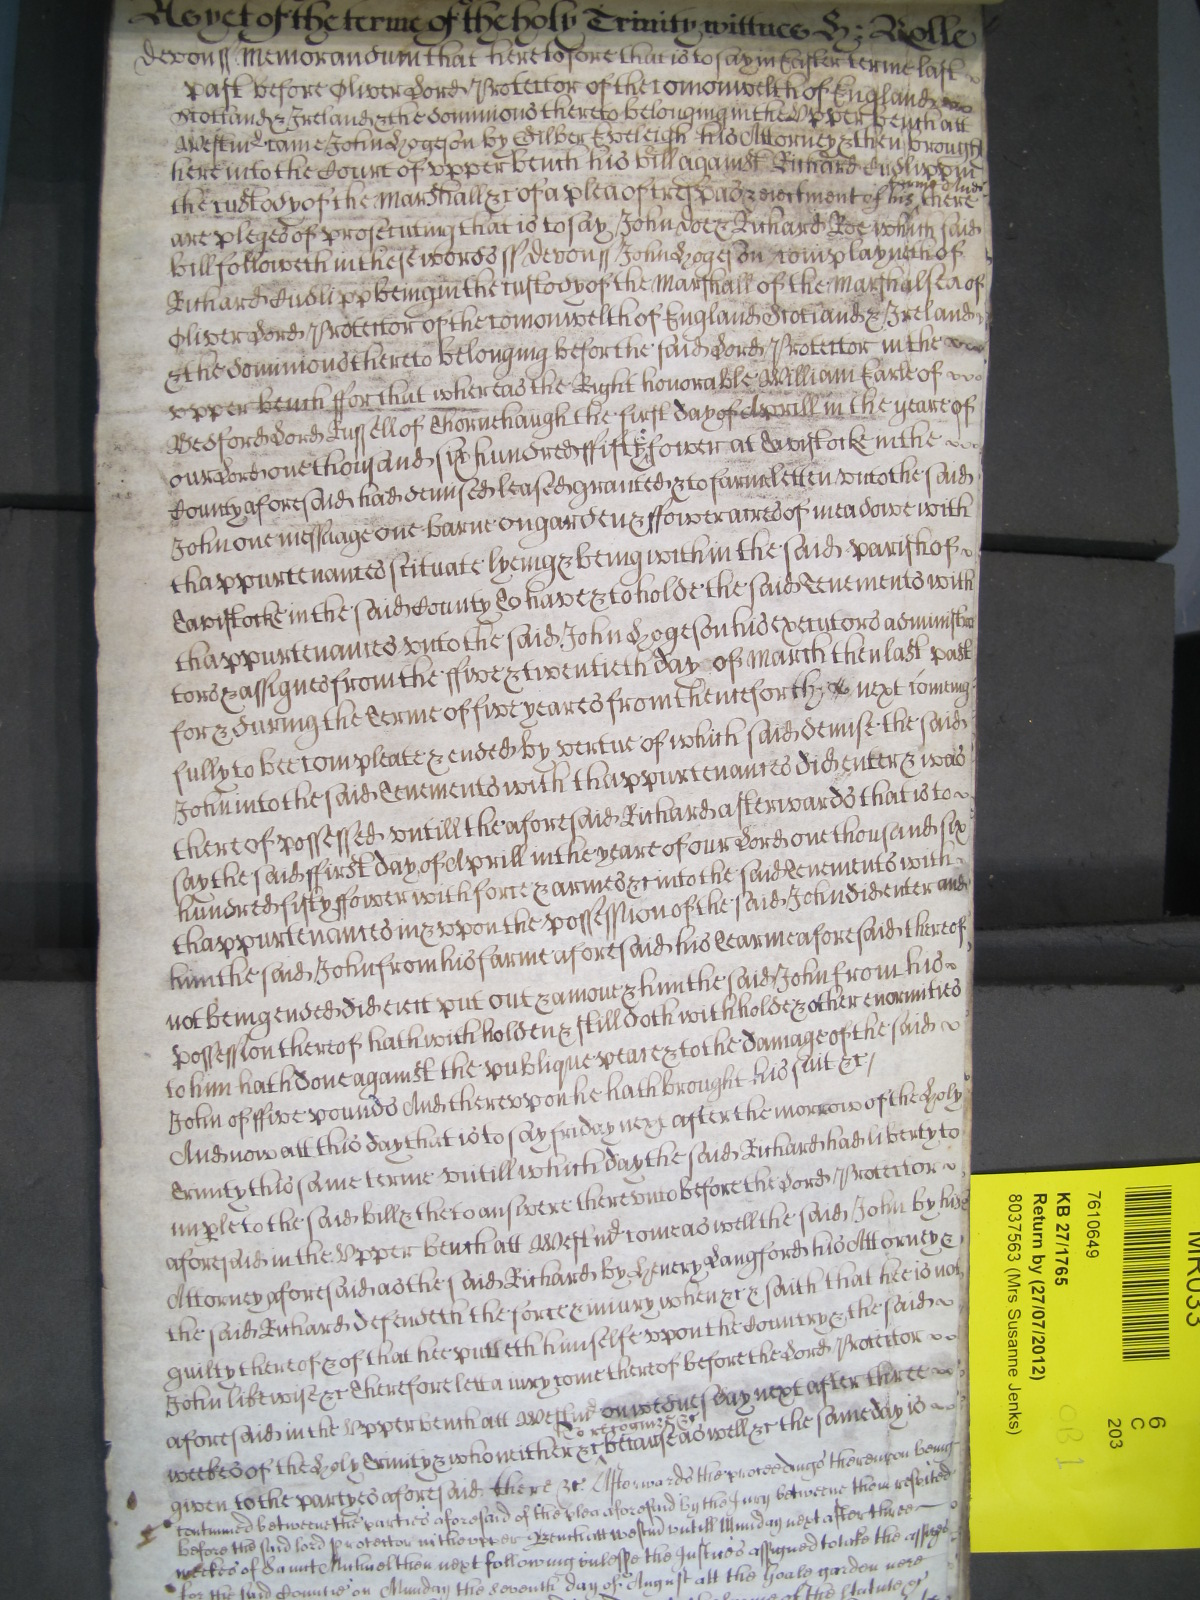 As yet of the terme of the holy Trinity wittnes H: Rolle
Devon ss Memorandum that heretofore that is to say in Easter terme last
past before Oliver Lord Protector of the Comonwelth of England
Scotland & Ireland & the dominions thereto belonging in the Upper bench att
Westmr came John Hogeson by Gilber Eveleigh his Attorney & then brought
here into the Court of upper bench his bill against Richard Cudlipp in
the custody of the Marshall &c of a plea of trespas & eiectment of his ferme & there
are pleges of prosecuting that is to say John Doe & Richard Roe which said
bill followeth in these words ss Devon ss John Hogeson complayneth of
Richard Cudlipp being in the custody of the Marshall of the Marshalsea of
Oliver Lord Protector of the Comonwelth of England Scotland & Ireland
& the dominions thereto belonging before the said Lord Protector in the
upper bench ffor that whereas the Right honorable William Earle of
Bedford Lord Russell of Thornehaugh the first day of Aprill in the yeare of
our Lord one thousand six hundred ffifty & fower at Tavistocke in the
County aforesaid had demised leased granted & to farme letten unto the said
John one messuage one barne on garden & ffower acres of meadowe with
thappurtenances scituate lyeing & being within the said parish of
Tavistocke in the said County To have & to holde the said Tenements with
thappurtenances unto the said John Hogeson his executors administra
tors & assignes from the ffive & twentieth day of March then last past
for & during the Terme of five yeares from thenceforth next comeing
fully to bee compleate & ended by vertue of which said demise the said
John into the said Tenements with thappurtenances did enter & was
thereof possessed untill the aforesaid Richard afterwards that is to
say the said ffirst day of Aprill in the yeare of our Lord one thousand six
hundred fifty ffower with force & armes &c into the said Tenements with
thappurtenances in & upon the possession of the said John did enter and
him the said John from his farme aforesaid his Tearme aforesaid thereof
not being ended did eiect put out & amove & him the said John from his
possession thereof hath withholden & still doth withholde & other enormities
to him hath done against the publique peace & to the damage of the said
John of ffive pounds And thereupon he hath brought his suit &c /
And now att this day that is to say friday next after the morrow of the Holy
Trinity this same terme untill which day the said Richard had liberty to
imple to the said bill & then to answere thereunto before the Lord Protector
aforesaid in the Upper bench att Westmr come as well the said John by his
Attorney aforesaid as the said Richard by Henery Langford his Attorney &
the said Richard defendeth the force & iniury when &c & saith that hee is not
guilty thereof & of that hee putteth himselfe upon the Country & the said
John likewise &c Therefore lett a iury come thereof before the Lord Protector
aforesaid in the Upper bench att Westmr on wednesday next after three
weekes of the Holy Trinity & who neither &c to recognize &c because as well &c the same day is
given to the partyes aforesaid there &c Afterwards the proceedings thereupon being
continued betweene the parties aforesaid of the plea aforesaid by the Jury betweene them respited
before the said lord protector in the upper Bench att westmr untill Munday next after three
weekes of Saint Michael then next following unlesse the Justices assigned to take the assizes
for the said Countie on Munday the seventh day of August att the Goale garden nere
MR033
6
C
203
7610649
KB 27/1765
Return by (27/07/2012)
8037563 (Mrs Susanne Jenks)
OB 1